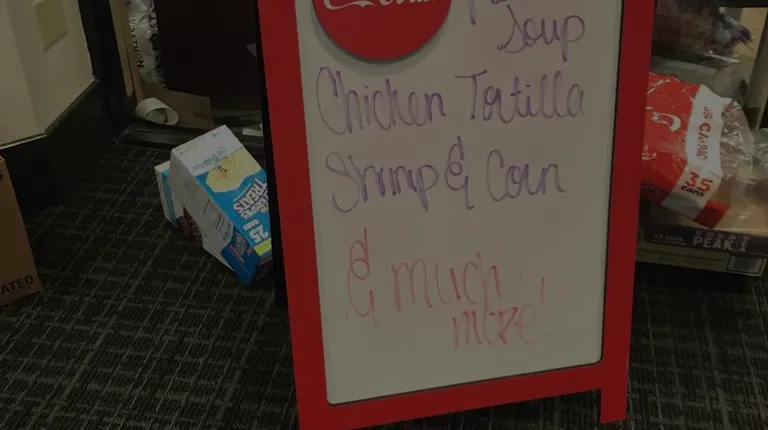 Soup
Chicken Tortilla
Shrimp & Corn
& much
more!
TREATS
25
35
cans
PEAK
ATED